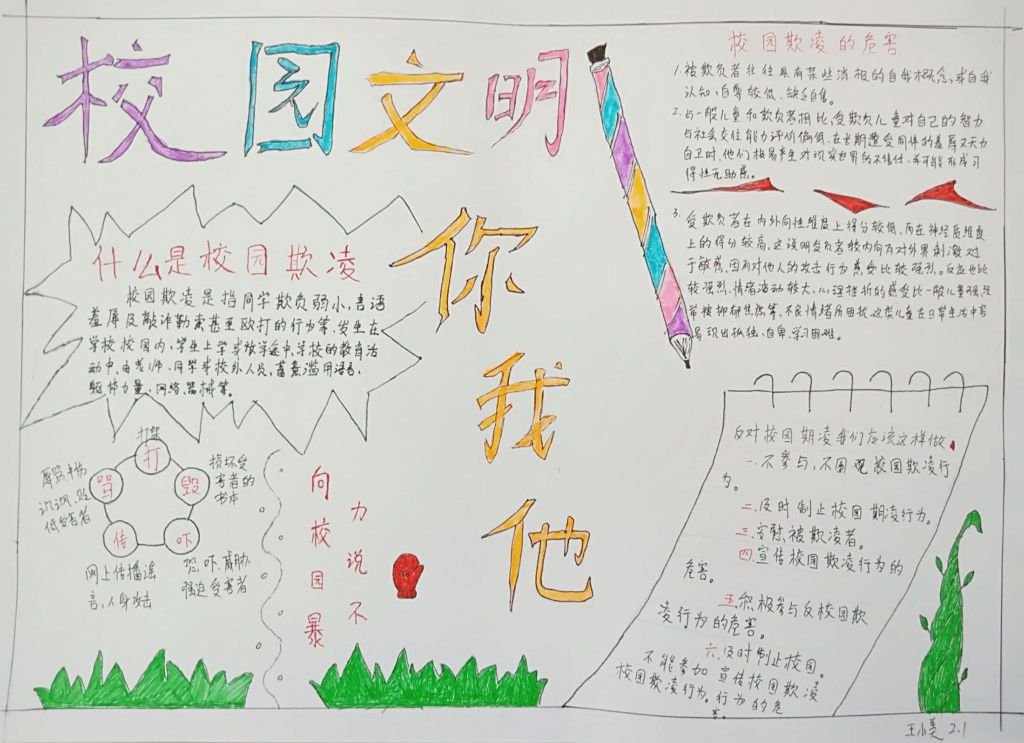 校园文明
你我他
什么是校园欺凌
校园欺凌是指同学欺负弱小、言语
羞辱及敲诈勒索甚至殴打的行为等,发生在
学校校园内、学生上学或放学途中、学校的教育活
动中,由老师、同学或校外人员,蓄意滥用语言、
躯体力量、网络、器械等。
打架
打
骂
毁
传
吓
辱骂、中伤
讥讽、贬
低受害者
损坏受
害者的
书本
网上传播谣
言,人身攻击
恐、吓、威胁、
强迫受害者
向校园暴
力说不
校园欺凌的危害
1.被欺负者往往具有某些消极的自我概念,或自我
认知、自尊较低、缺乏自信。
2.与一般儿童和欺负者相比,受欺负儿童对自己的智力
与社会交往能力评价偏低,在长期遭受同伴的羞辱又无力
自卫时,他们极易产生对现实世界的不信任,并可能形成习
得性无助感。
3.受欺负者在内外向性维度上得分较低、而在神经质维度
上的得分较高,这说明受负者较内向而对外界刺激过
于敏感,因而对他人的攻击行为感受比较强烈。反应也比
较强烈、情绪波动较大、心理挫折的感受比一般儿童强,经
常被抑郁焦虑等、不良情绪所困扰,这类儿童在日常生活中容
易现出孤独、自卑、学习困难。
反对校园期凌我们应该这样做
一.不参与,不围观校园欺凌行
为。
二.及时制止校园期凌行为。
三.安慰被欺凌者。
四.宣传校园欺凌行为的
危害。
五.积极参与反校园欺
凌行为的危害。
六.及时制止校园。
不能参加宣传校园欺凌
校园欺凌行为。行为的危
害。
王小美 2.1